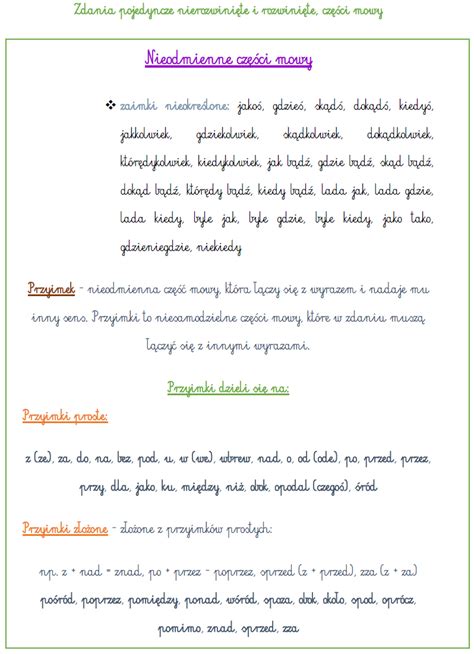 Zdania pojedyncze nierozwinięte i rozwinięte, części mowy
Nieodmienne części mowy
❖ zaimki nieokreślone: jakoś, gdzieś, skądś, dokądś, kiedyś,
jakkolwiek, gdziekolwiek, skądkolwiek, dokądkolwiek,
którędykolwiek, kiedykolwiek, jak bądź, gdzie bądź, skąd bądź,
dokąd bądź, którędy bądź, kiedy bądź, lada jak, lada gdzie,
lada kiedy, byle jak, byle gdzie, byle kiedy, jako tako,
gdzieniegdzie, niekiedy
Przyimek - nieodmienna część mowy, która łączy się z wyrazem i nadaje mu
inny sens. Przyimki to niesamodzielne części mowy, które w zdaniu muszą
łączyć się z innymi wyrazami.
Przyimki dzieli się na:
Przyimki proste:
z (ze), za, do, na, bez, pod, u, w (we), wbrew, nad, o, od (ode), po, przed, przez,
przy, dla, jako, ku, między, niż, obok, opodal (czegoś), śród
Przyimki złożone - złożone z przyimków prostych:
np. z + nad = znad, po + przez - poprzez, sprzed (z + przed), zza (z + za)
pośród, poprzez, pomiędzy, ponad, wśród, spoza, obok, około, spod, oprócz,
pomimo, znad, sprzed, zza